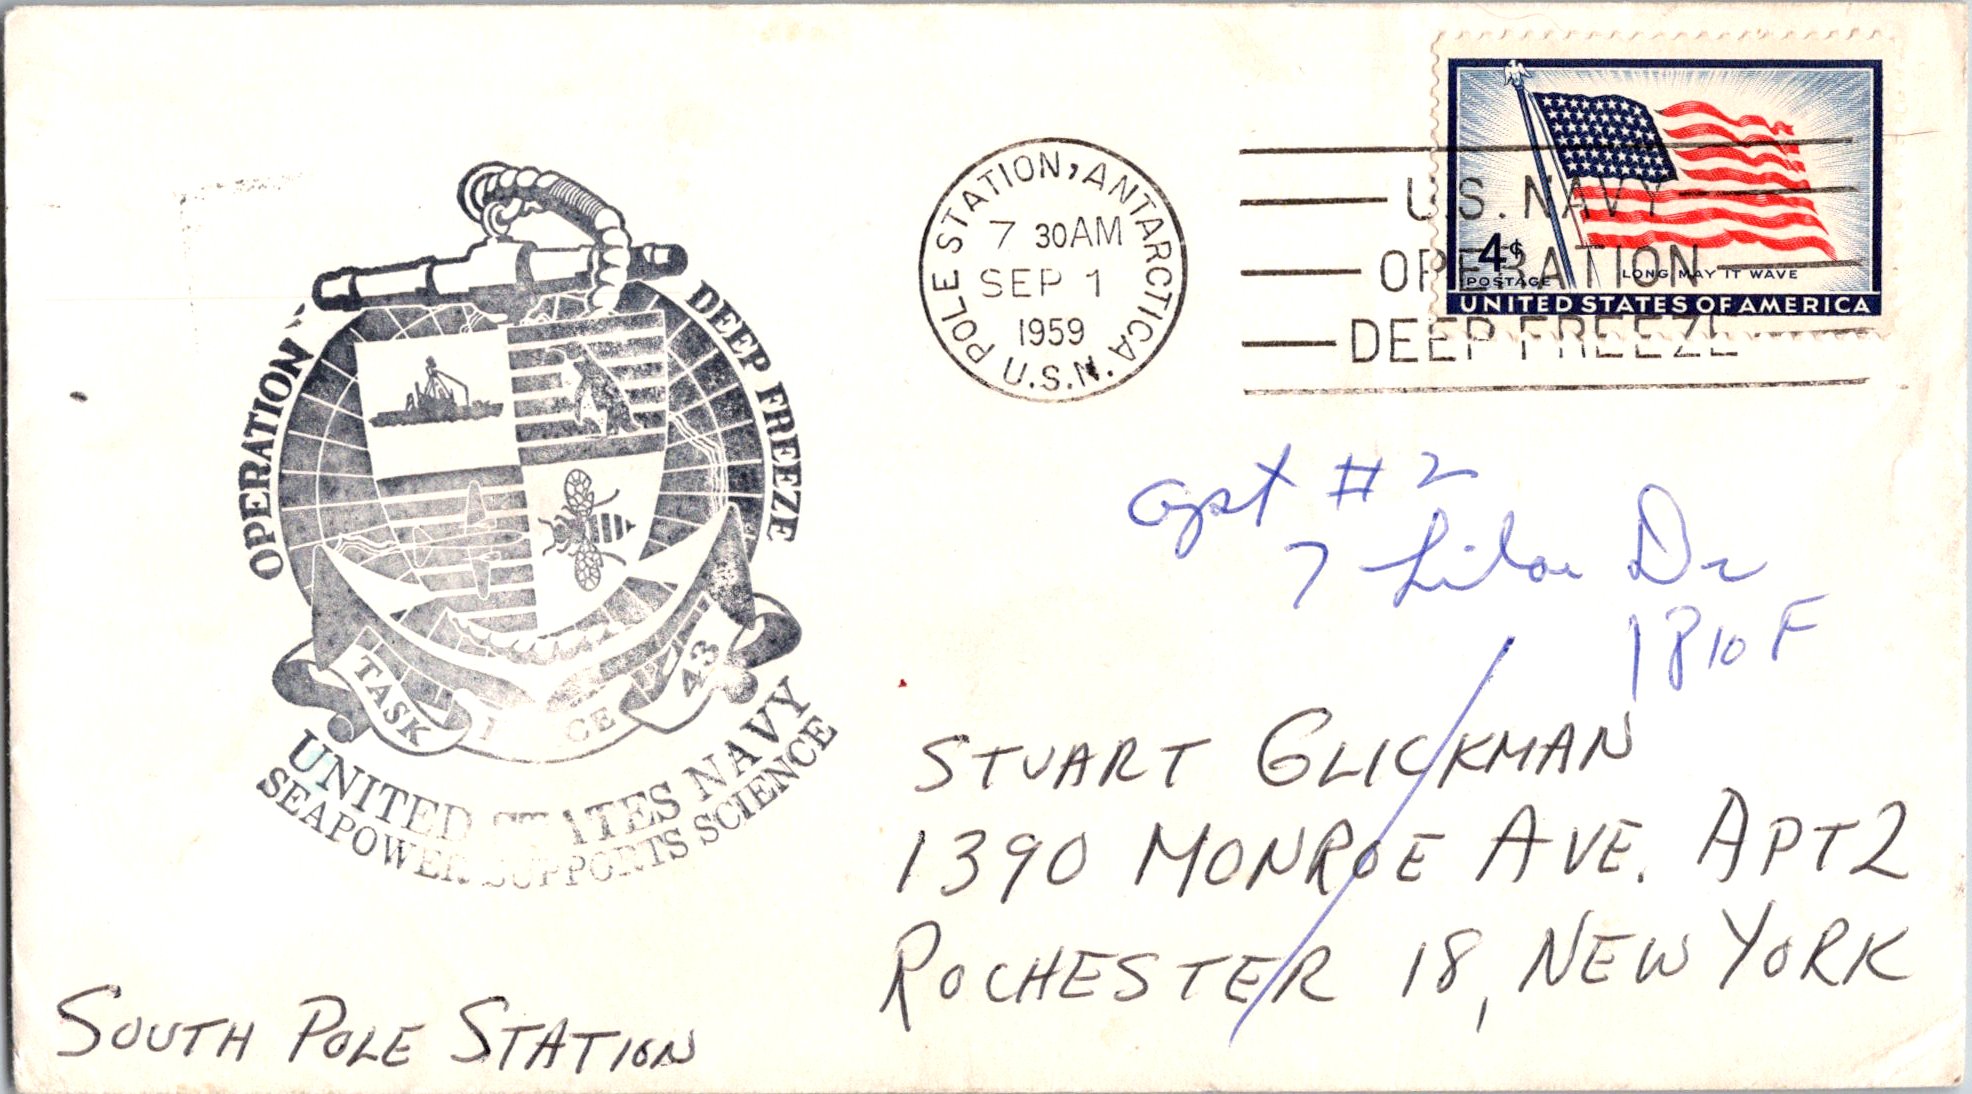 OPERATION DEEP FREEZE
TASK FORCE 43
UNITED STATES NAVY
SEAPOWER SUPPORTS SCIENCE
POLE STATION, ANTARCTICA
7 30AM
SEP 1
1959
U.S.N.
U.S. NAVY
OPERATION
DEEP FREEZE
4¢
POSTAGE
LONG MAY IT WAVE
UNITED STATES OF AMERICA
apt # 2
7 Dr
1810F
STUART GLICKMAN
1390 MONROE AVE. APT 2
ROCHESTER 18, NEW YORK
SOUTH POLE STATION